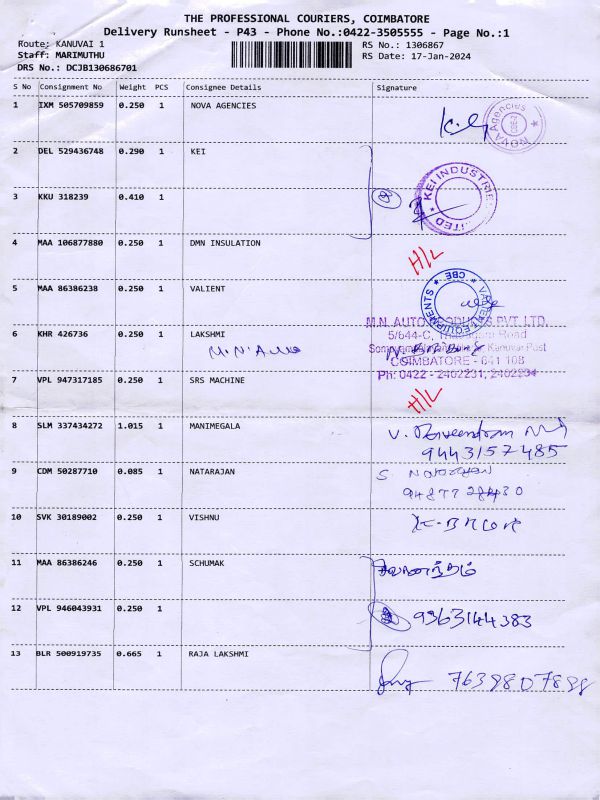 THE PROFESSIONAL COURIERS, COIMBATORE
Delivery Runsheet - P43 - Phone No.:0422-3505555 - Page No.:1
Route: KANUVAI 1
RS No.: 1306867
Staff: MARIMUTHU
RS Date: 17-Jan-2024
DRS No.: DCJB130686701
S No Consignment No Weight PCS Consignee Details Signature
1 IXM 505709859 0.250 1 NOVA AGENCIES
NOVA Agencies CBE-2
2 DEL 529436748 0.290 1 KEI
3 KKU 318239 0.410 1
2
KEI INDUSTRIES LIMITED
4 MAA 106877880 0.250 1 DMN INSULATION H/L
5 MAA 86386238 0.250 1 VALIENT
EQUIPMENTS CBE
6 KHR 426736 0.250 1 LAKSHMI
M.N. AUTO PRODUCTS PVT. LTD.
5/644-C, Road
Kanuvai-Post
COIMBATORE - 641 108
Ph: 0422 - 2402231, 2402234
M.N. Auto
7 VPL 947317185 0.250 1 SRS MACHINE H/L
8 SLM 337434272 1.015 1 MANIMEGALA V.
9443157485
9 CDM 50287710 0.085 1 NATARAJAN S.
10 SVK 30189002 0.250 1 VISHNU
11 MAA 86386246 0.250 1 SCHUMAK
12 VPL 946043931 0.250 1 9363144383
13 BLR 500919735 0.665 1 RAJA LAKSHMI